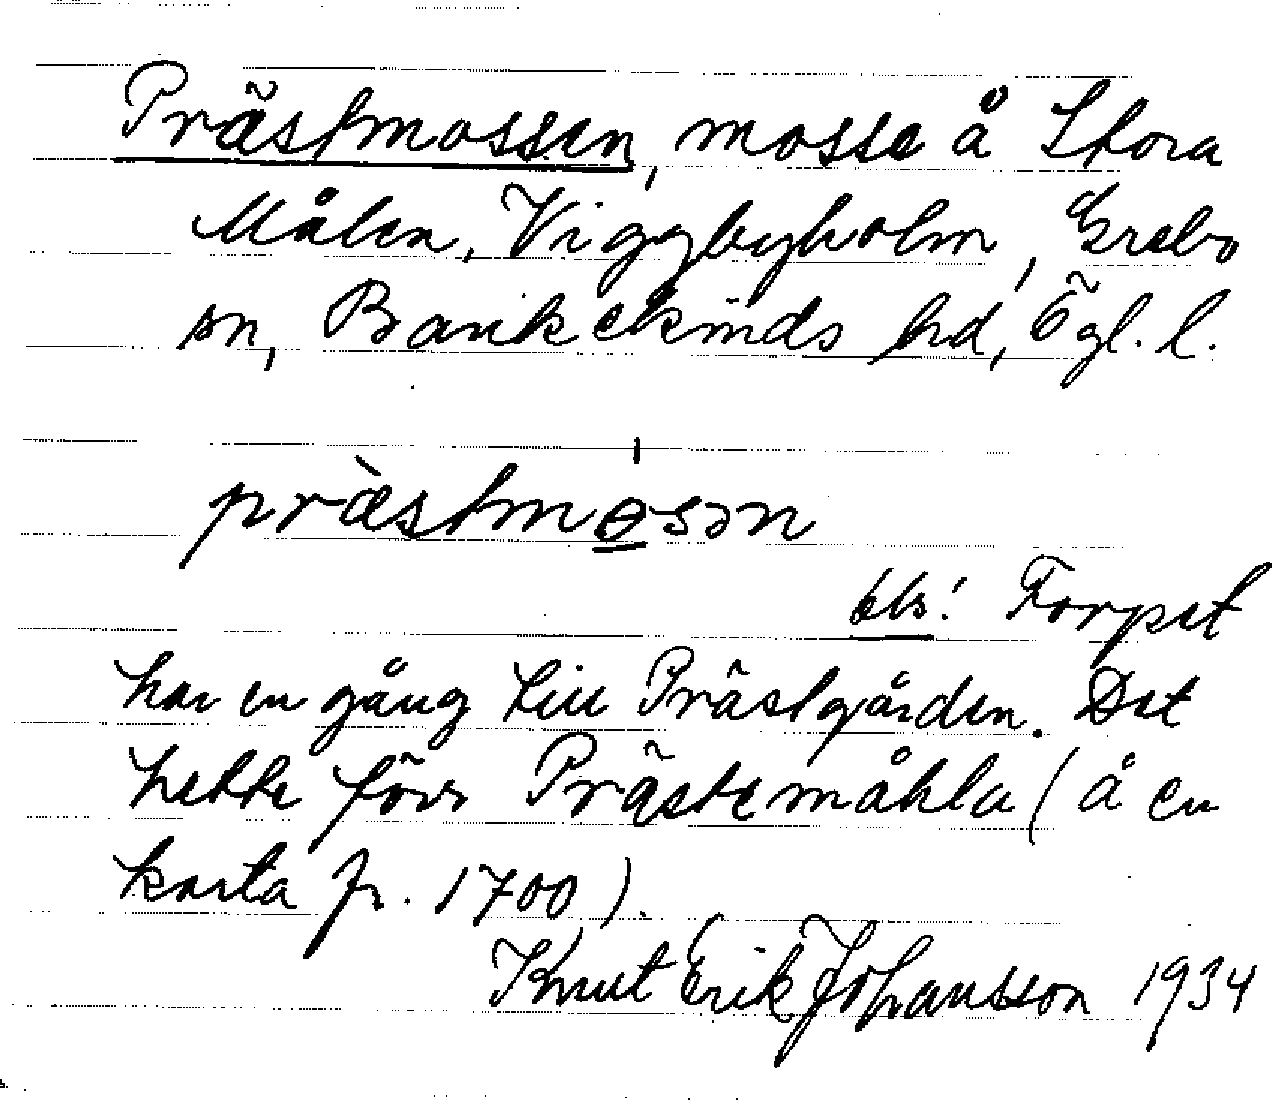 Prästmossen, mosse å Stora
Målen, Viggbyholm, Grebo
sn, Bankekinds hd, Ögl. l.
præ̀stmɵsən
bls! Torpet
har en gång till Prästgården. Det
hette förr Prästemåhla (å en
karta fr. 1700).
Knut Erik Johansson 1934